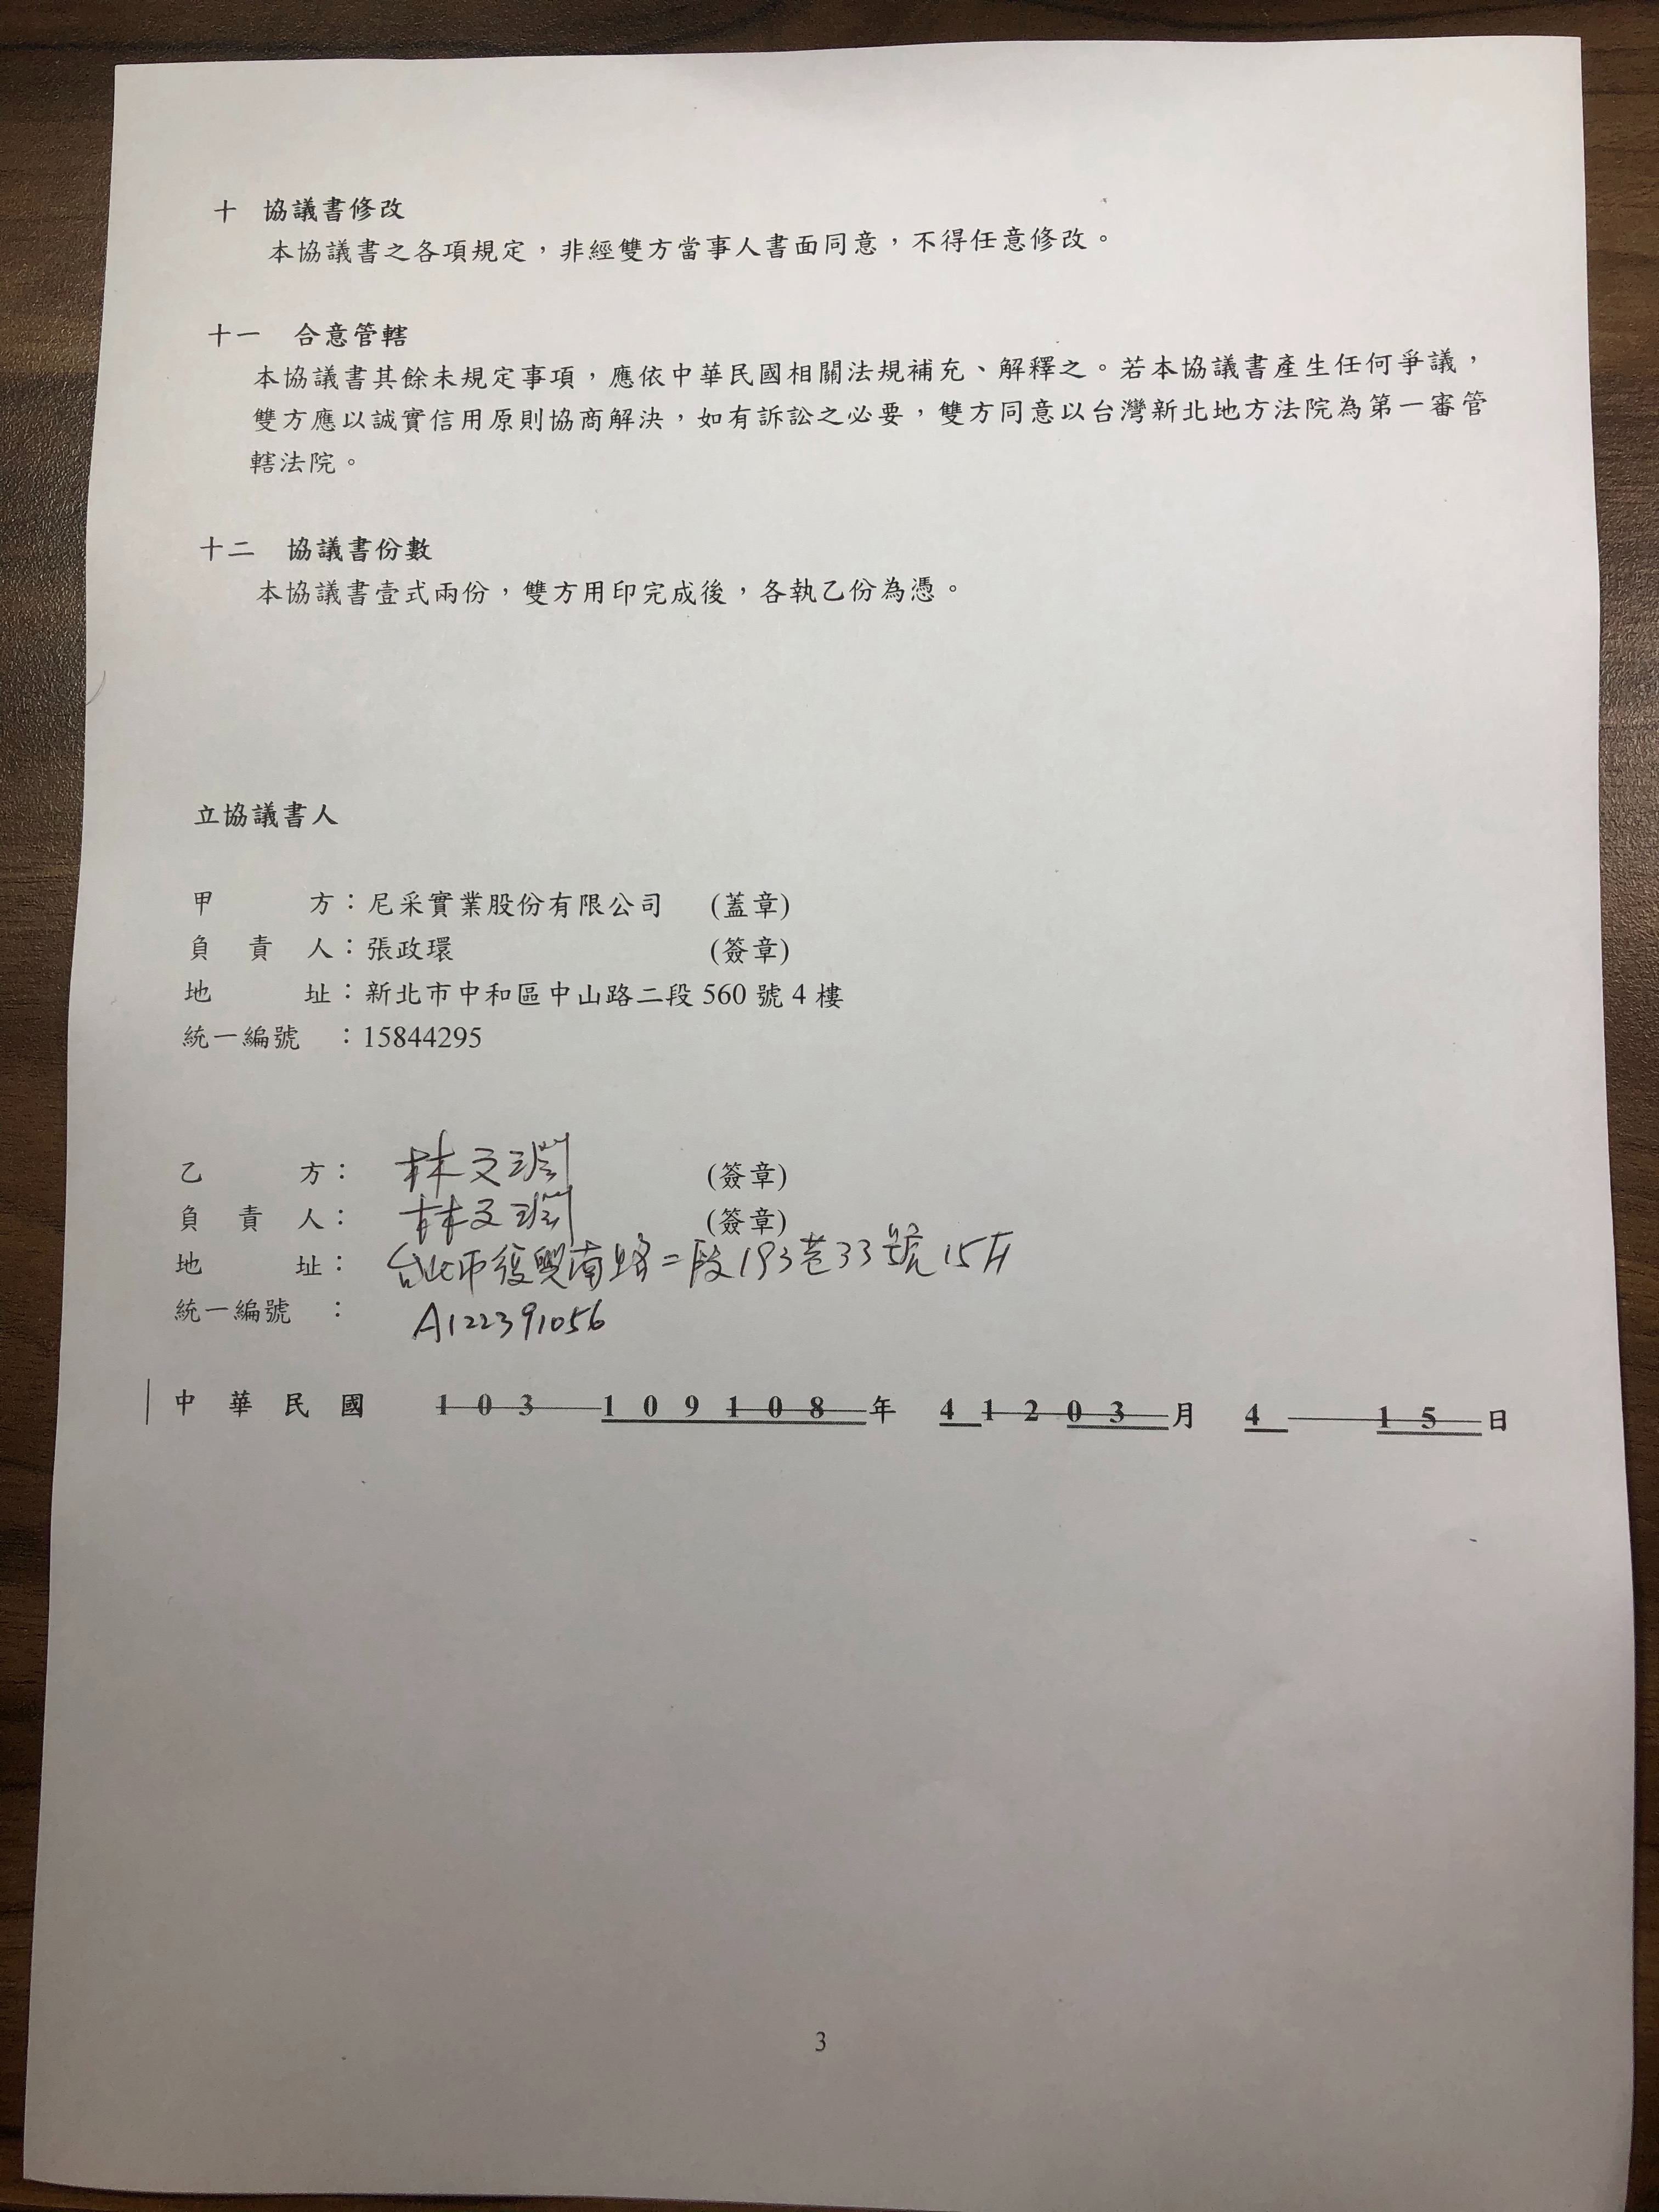 十 協議書修改
本協議書之各項規定，非經雙方當事人書面同意，不得任意修改。
十一 合意管轄
本協議書其餘未規定事項，應依中華民國相關法規補充、解釋之。若本協議書產生任何爭議，
雙方應以誠實信用原則協商解決，如有訴訟之必要，雙方同意以台灣新北地方法院為第一審管
轄法院。
十二 協議書份數
本協議書壹式兩份，雙方用印完成後，各執乙份為憑。
立協議書人
甲 方：尼采實業股份有限公司 (蓋章)
負 責 人：張政環 (簽章)
地 址：新北市中和區中山路二段 560 號 4 樓
統一編號 ：15844295
乙 方： 林文 (簽章)
負 責 人： 林文 (簽章)
地 址： 台北市復興南路二段193巷33號15F
統一編號 ： A122391056
中 華 民 國 1 0 3 1 0 9 1 0 8 年 4 1 2 0 3 月 4 1 5 日
3